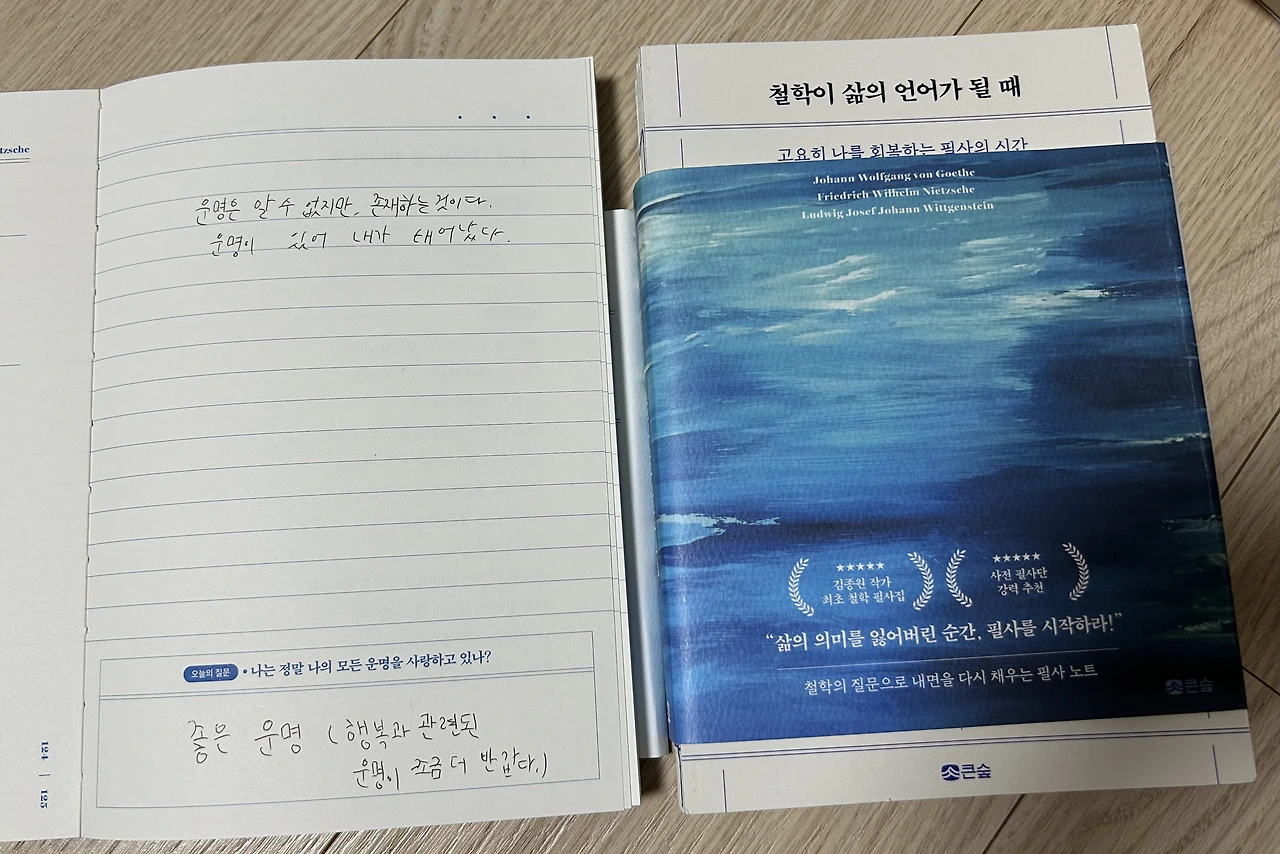 tzsche
운명은 알 수 없지만, 존재하는 것이다.
운명이 있어 내가 태어났다.
오늘의 질문 • 나는 정말 나의 모든 운명을 사랑하고 있나?
좋은 운명 (행복과 관련된
운명이 조금 더 반갑다.)
124 | 125
철학이 삶의 언어가 될 때
고요히 나를 회복하는 필사의 시간
Johann Wolfgang von Goethe
Friedrich Wilhelm Nietzsche
Ludwig Josef Johann Wittgenstein
★★★★★
김종원 작가
최초 철학 필사집
★★★★★
사전 필사단
강력 추천
“삶의 의미를 잃어버린 순간, 필사를 시작하라!”
철학의 질문으로 내면을 다시 채우는 필사 노트
큰숲
큰숲